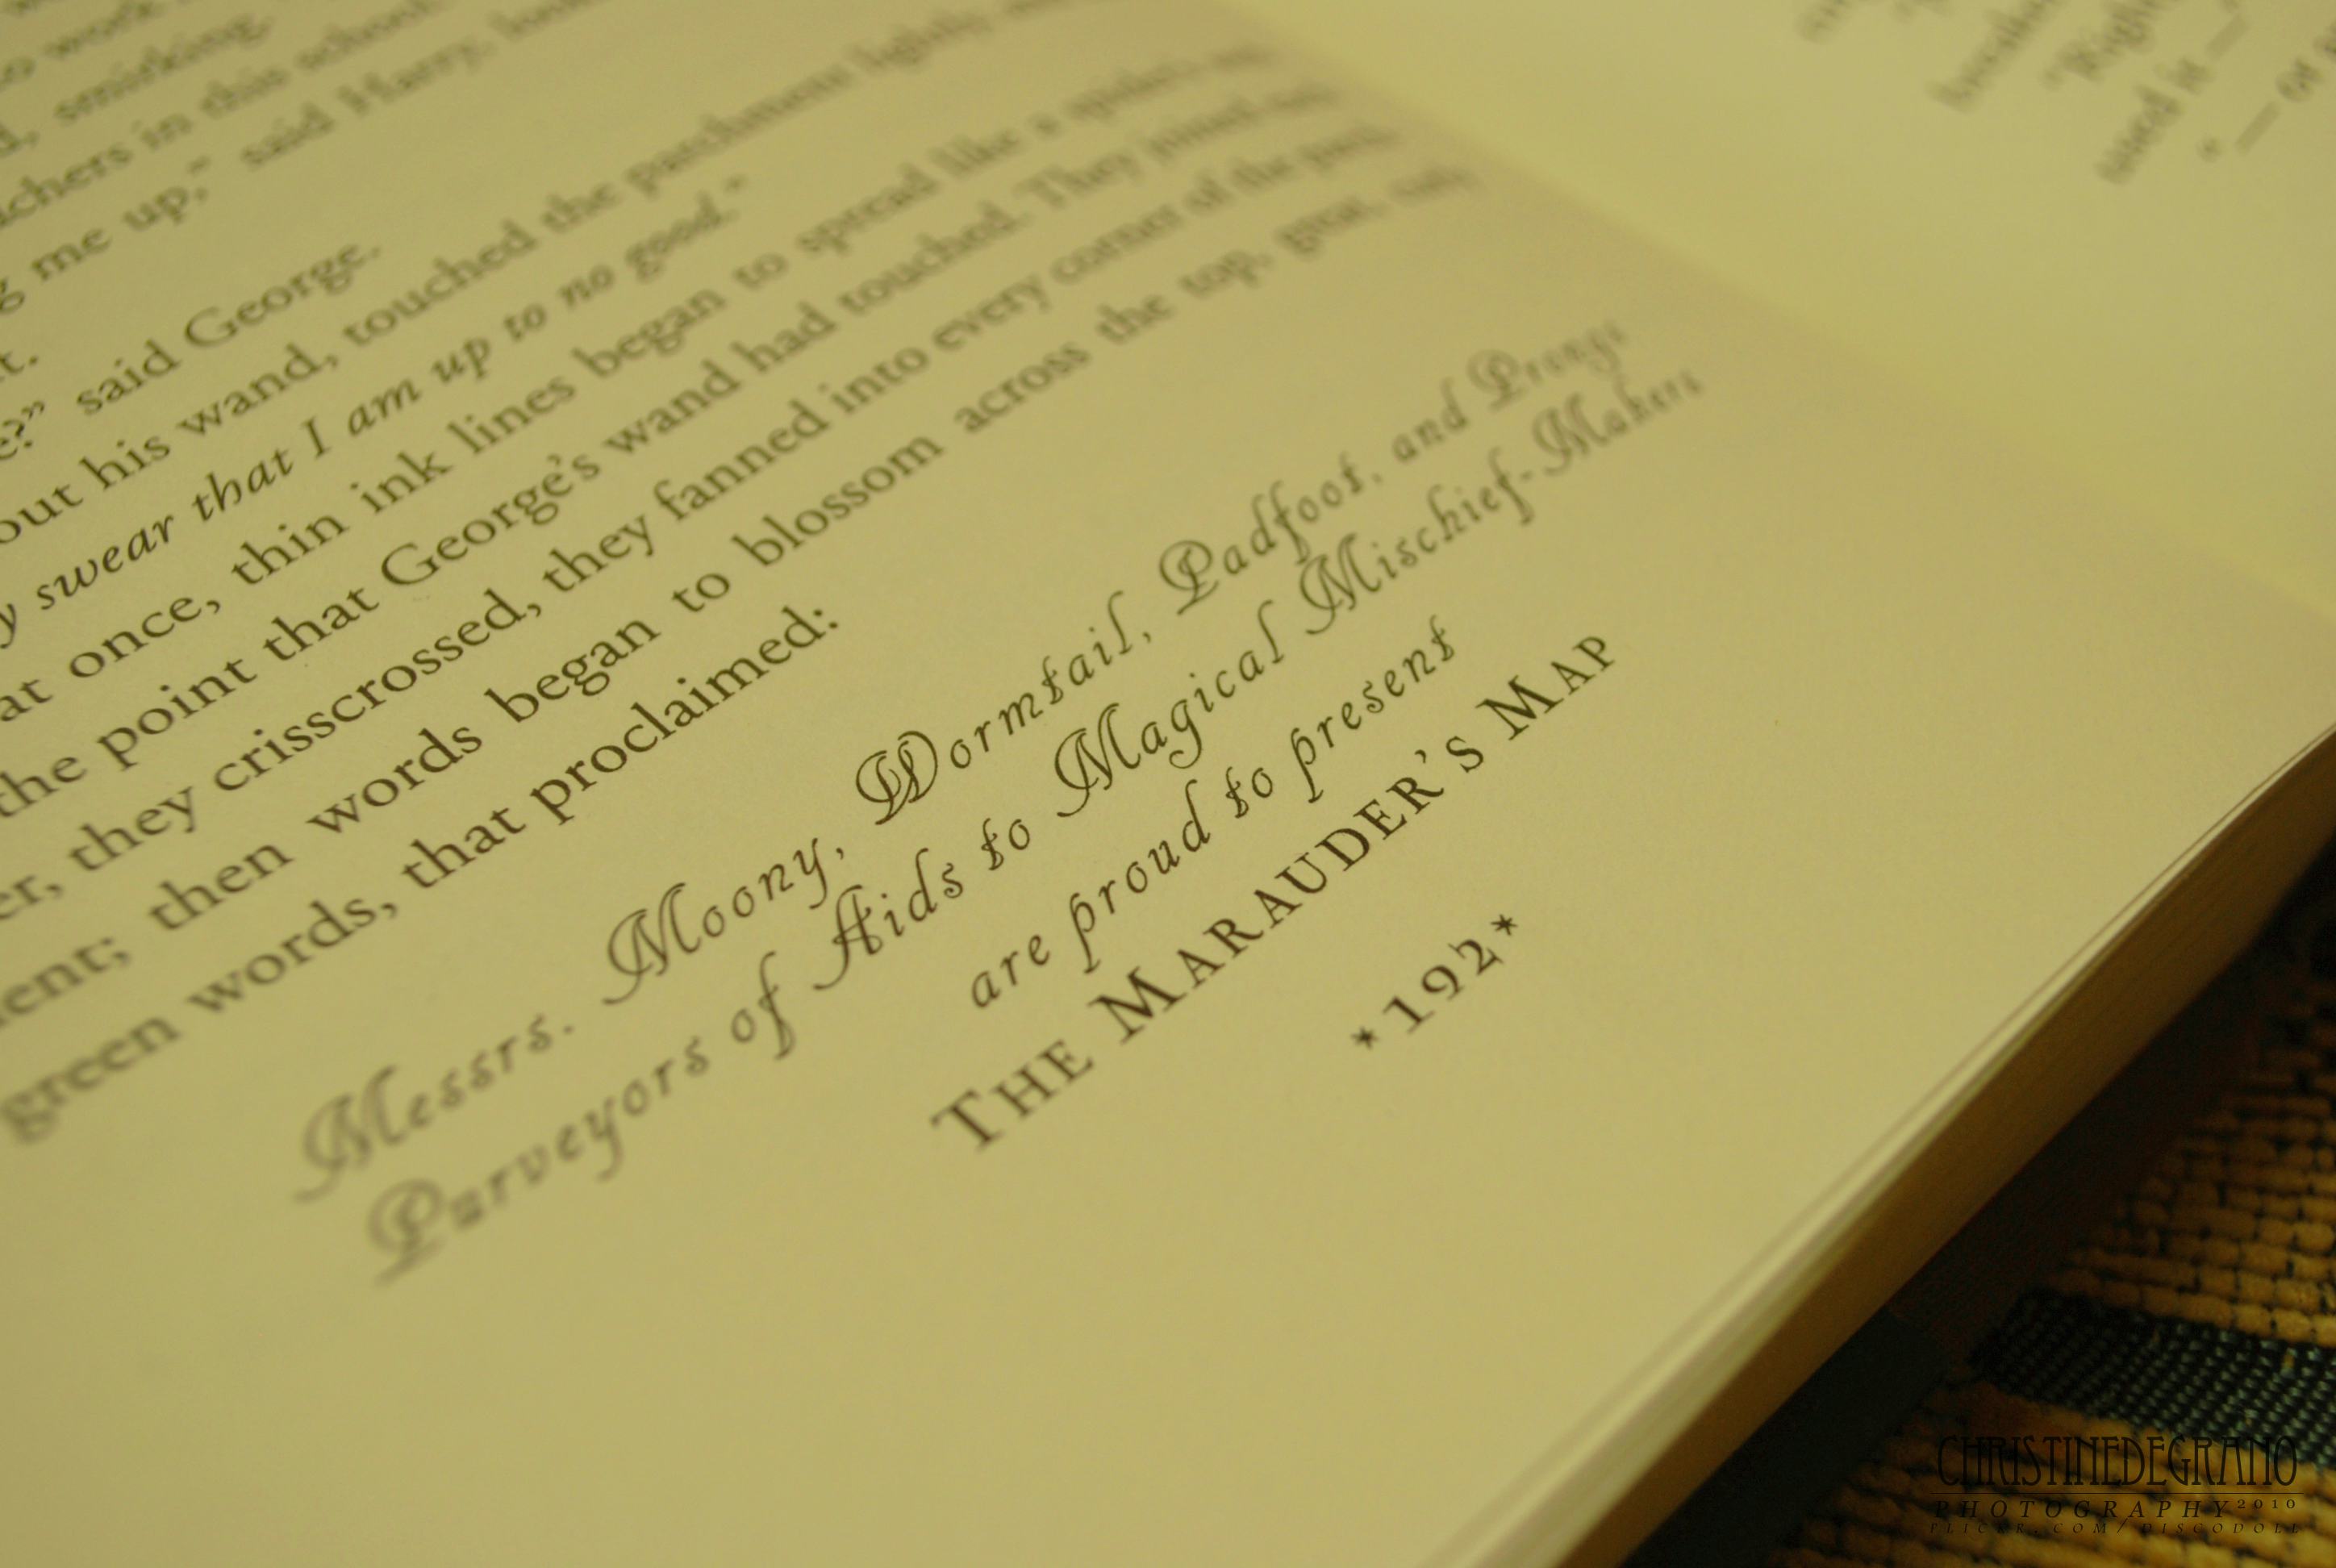 o work
d, smirking.
achers in this school
g me up," said Harry,
t.
e?" said George.
out his wand, touched the parchment lightly,
y swear that I am up to no good."
at once, thin ink lines began to spread like a spider's
the point that George's wand had touched. They joined
er, they crisscrossed, they fanned into every corner of the
ent; then words began to blossom across the top, great, curly
green words, that proclaimed:
Messrs. Moony, Wormtail, Padfoot, and Prongs
Purveyors of Aids to Magical Mischief-Makers
are proud to present
THE MARAUDER'S MAP
*192*
"Right
used it —
"— or
CHRISTINEDEGRANO
PHOTOGRAPHY2010
FLICKR.COM/DISCODOLL